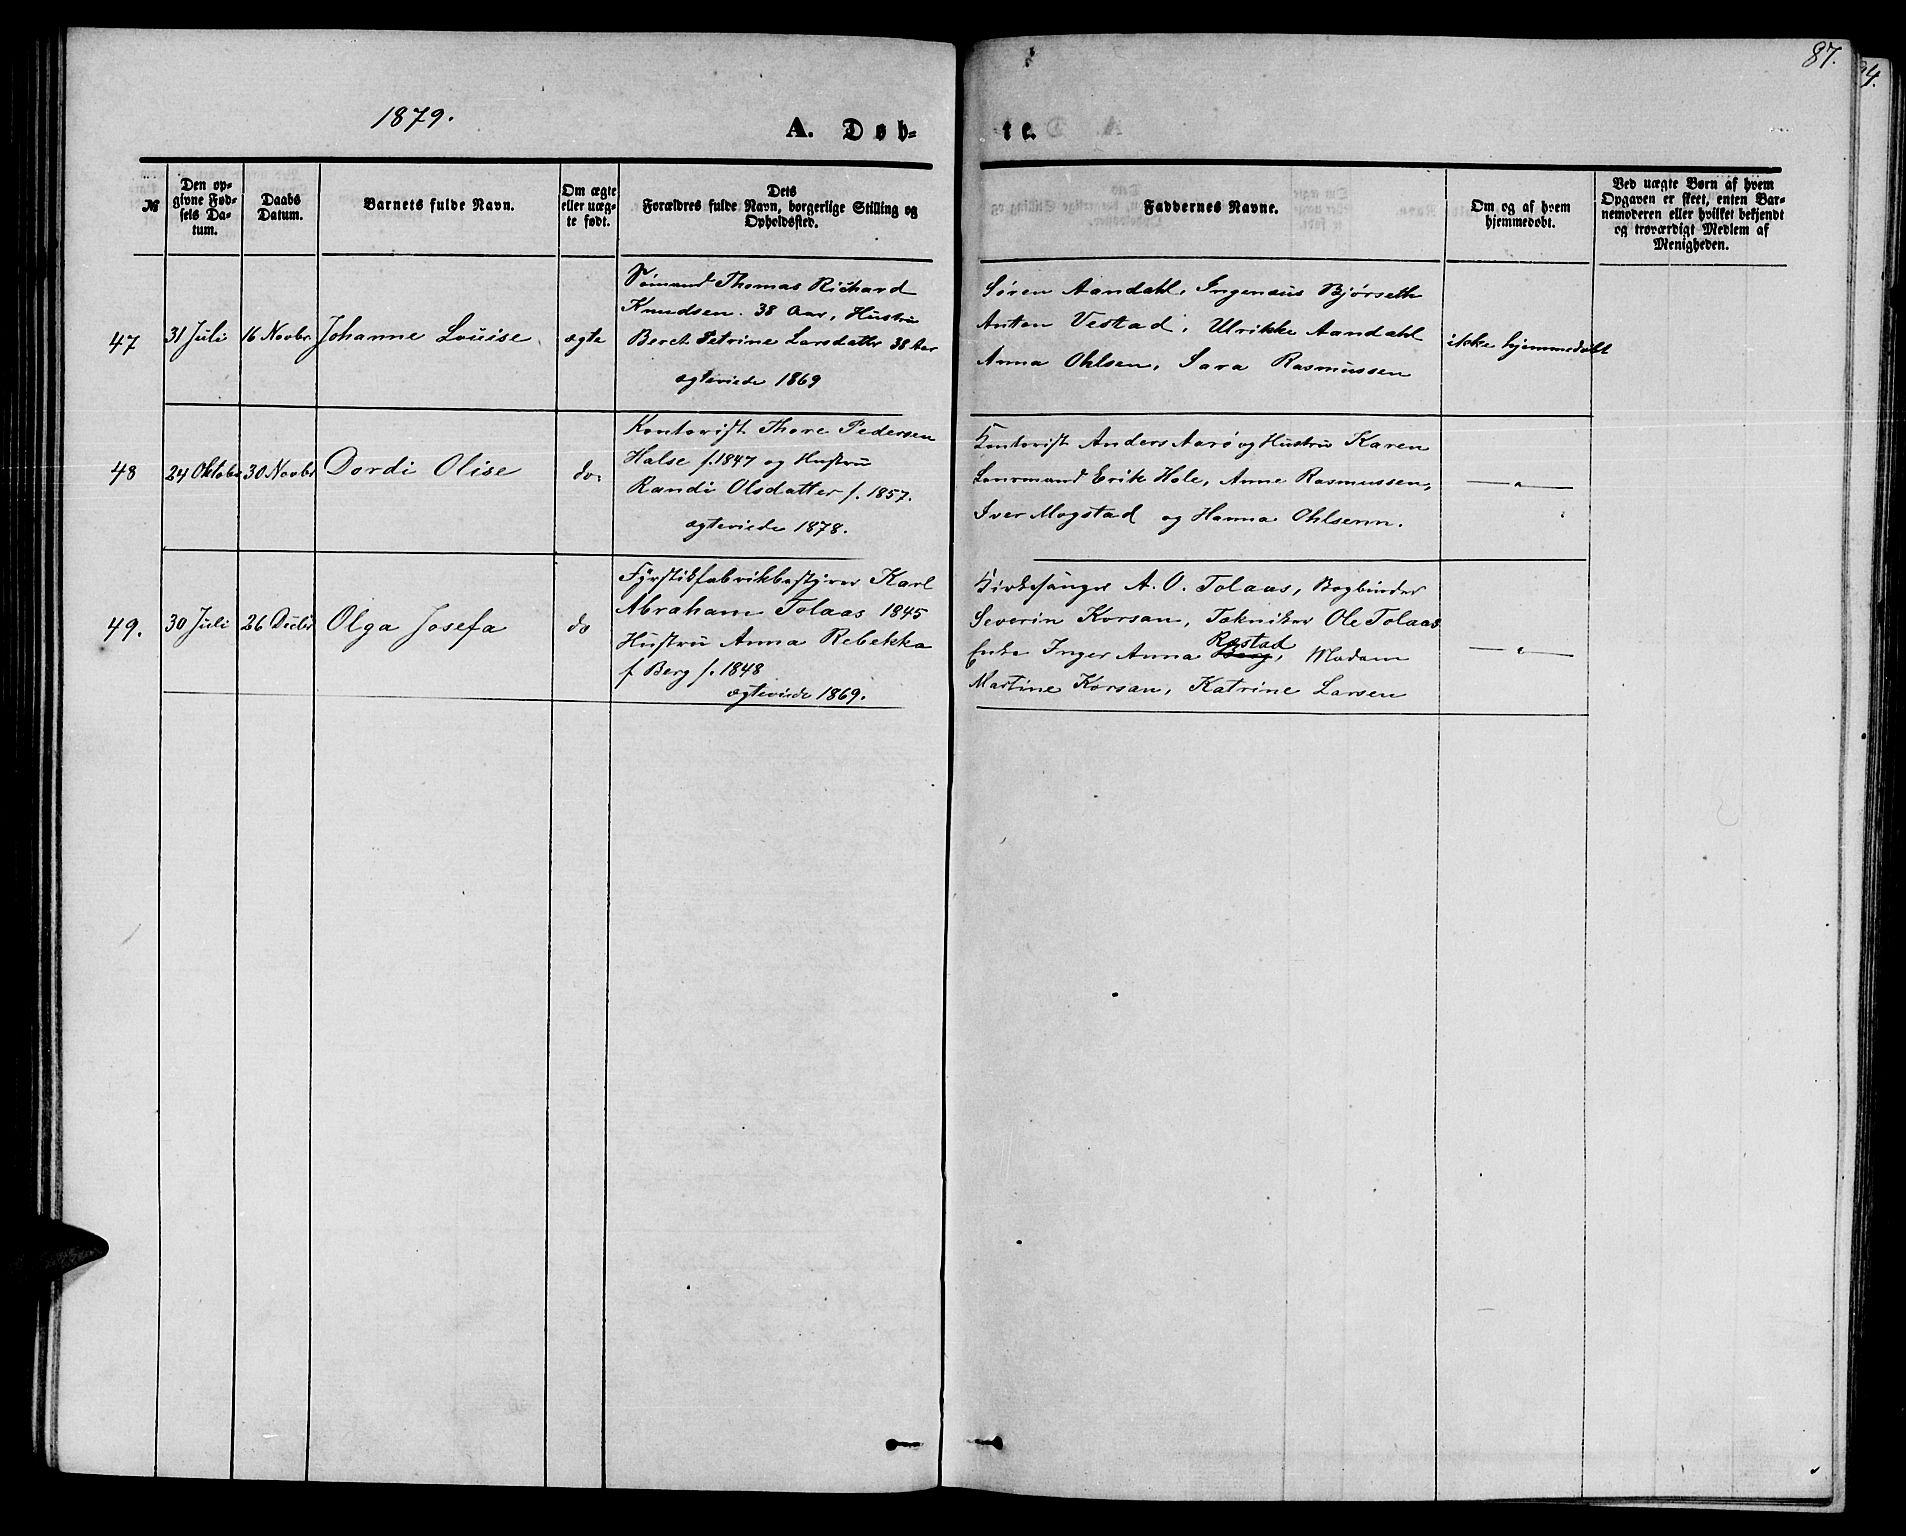 87.
1879.
A. Døb-
te.
№
Den op-
givne Fød-
sels Da-
tum.
Daabs
Datum.
Barnets fulde Navn.
Om ægte
eller uæg-
te født.
Dets
Forældres fulde Navn, borgerlige Stilling og
Opholdssted.
Faddernes Navne.
Om og af hvem
hjemmedøbt.
Ved uægte Børn af hvem
Opgaven er skeet, enten Bar-
nemoderen eller hvilket bekjendt
og troværdigt Medlem af
Menigheden.
47
31 Juli
16 Novbr
Johanne Louise
ægte
Sømand Thomas Richard
Knudsen. 38 Aar, Hustru
Beret Petrine Larsdatter 38 Aar
ægteviede 1869
Søren Aandahl, Ingenius Bjørseth
Anton Vestad, Ulrikke Aandahl
Anna Ohlsen, Sara Rasmussen
ikke hjemmedøbt
48
24 Oktober
30 Novbr
Dordi Olise
do.
Kontorist Thore Pedersen
Halse f. 1847 og Hustru
Randi Olsdatter f. 1857.
ægteviede 1878.
Kontorist Anders Aarø og Hustru Karen
Lensmand Erik Hole, Anne Rasmussen,
Iver Mogstad og Hanna Ohlsenn.
— " —
49.
30 Juli
26 Decbr
Olga Josefa
do
Fyrstikfabrikbestyrer Karl
Abraham Tolaas 1845
Hustru Anna Rebekka
f Berg f. 1848
ægteviede 1869.
Kirkesanger A. O. Tolaas, Bogbinder
Severin Korsan, Tekniker Ole Tolaas
Enke Inger Anna Berg, Røstad Madam
Martine Korsan, Katrine Larsen
— " —